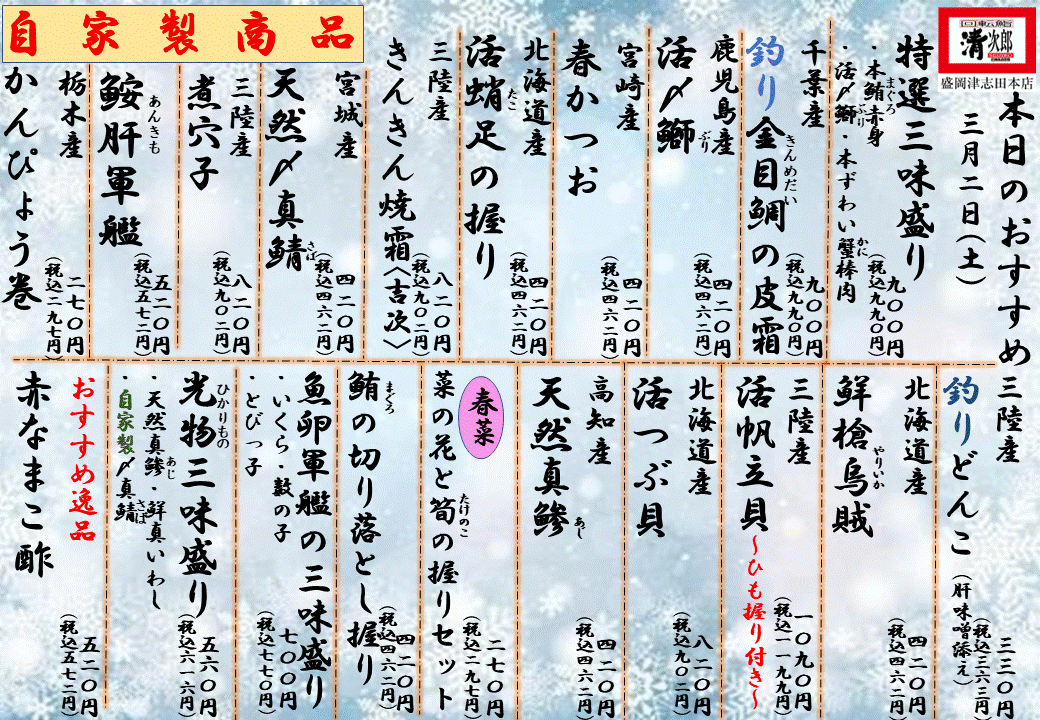 回転鮨
清次郎
SEIJIRO
盛岡津志田本店
本日のおすすめ
三月二日(土)
特選三味盛り
・本鮪赤身
まぐろ
・活〆鰤・本ずわい蟹棒肉
ぶり
かに
九〇〇円
(税込九九〇円)
千葉産
釣り金目鯛の皮霜
きんめだい
九〇〇円
(税込九九〇円)
鹿児島産
活〆鰤
ぶり
四二〇円
(税込四六二円)
宮崎産
春かつお
四二〇円
(税込四六二円)
北海道産
活蛸足の握り
たこ
四二〇円
(税込四六二円)
三陸産
きんきん焼霜〈吉次〉
八二〇円
(税込九〇二円)
宮城産
天然〆真鯖
さば
四二〇円
(税込四六二円)
自家製商品
三陸産
煮穴子
八二〇円
(税込九〇二円)
鮟肝軍艦
あんきも
五二〇円
(税込五七二円)
栃木産
かんぴょう巻
二七〇円
(税込二九七円)
三陸産
釣りどんこ(肝味噌添え)
三三〇円
(税込三六三円)
北海道産
鮮槍烏賊
やりいか
四二〇円
(税込四六二円)
三陸産
活帆立貝~ひも握り付き~
一〇九〇円
(税込一一九九円)
北海道産
活つぶ貝
八二〇円
(税込九〇二円)
高知産
天然真鯵
あじ
四二〇円
(税込四六二円)
春菜
菜の花と筍の握りセット
たけのこ
二七〇円
(税込二九七円)
鮪の切り落とし握り
まぐろ
四二〇円
(税込四六二円)
魚卵軍艦の三味盛り
・いくら・数の子
・とびっ子
七〇〇円
(税込七七〇円)
光物三味盛り
ひかりもの
・天然真鯵・鮮真いわし
あじ
・自家製〆真鯖
さば
五六〇円
(税込六一六円)
おすすめ逸品
赤なまこ酢
五二〇円
(税込五七二円)